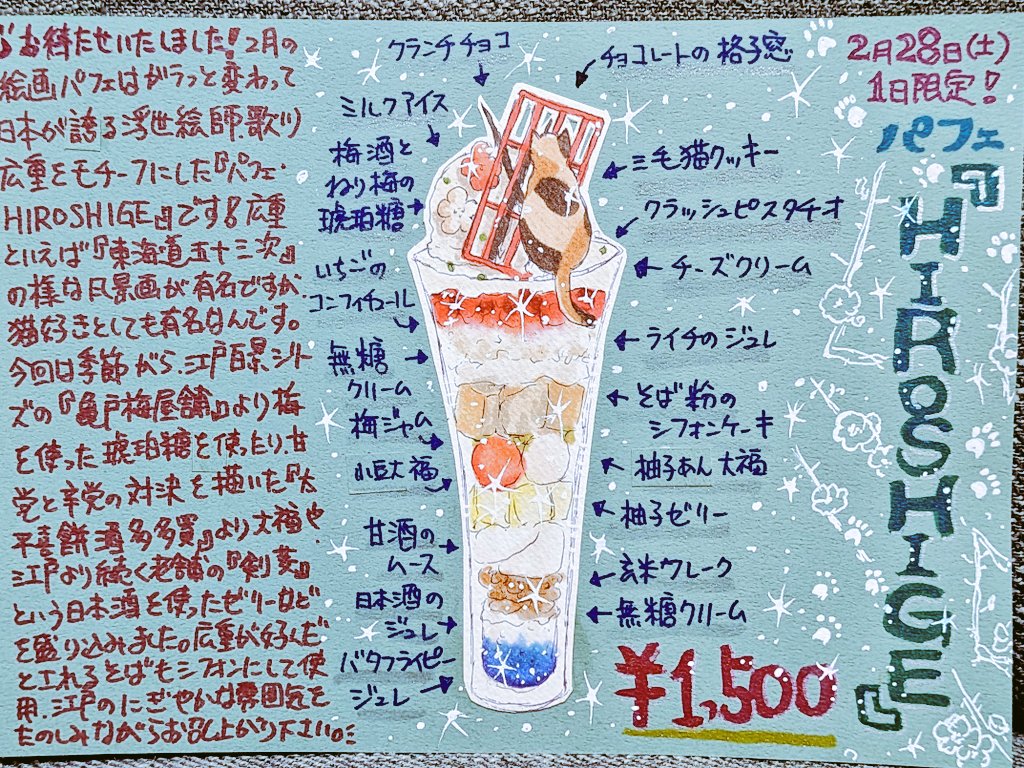 お待たせいたしました！2月の
絵画パフェはガラっと変わって
日本が誇る浮世絵師、歌川
広重をモチーフにした『パフェ・
HIROSHIGE』です！広重
といえば『東海道五十三次』
の様な風景画が有名ですが、
猫好きとしても有名なんです。
今回は季節がら、江戸百景シリー
ズの『亀戸梅屋舗』より梅
を使った琥珀糖を使ったり、甘
党と辛党の対決を描いた『太
平喜餅酒多多買』より大福や
江戸より続く老舗の『剣菱』
という日本酒を使ったゼリーなど
を盛り込みました。広重が好んだ
とされるそばもシフォンにして使
用、江戸のにぎやかな雰囲気を
たのしみながらお召し上がり下さい。
クランチチョコ
ミルクアイス
梅酒と
ねり梅の
琥珀糖
いちごの
コンフィチュール
無糖
クリーム
梅ジャム
小豆大福
甘酒の
ムース
日本酒の
ジュレ
バタフライピー
ジュレ
チョコレートの格子窓
三毛猫クッキー
クラッシュピスタチオ
チーズクリーム
ライチのジュレ
そば粉の
シフォンケーキ
柚子あん大福
柚子ゼリー
玄米フレーク
無糖クリーム
¥1,500
2月28日(土)
1日限定！
パフェ
『HIROSHIGE』